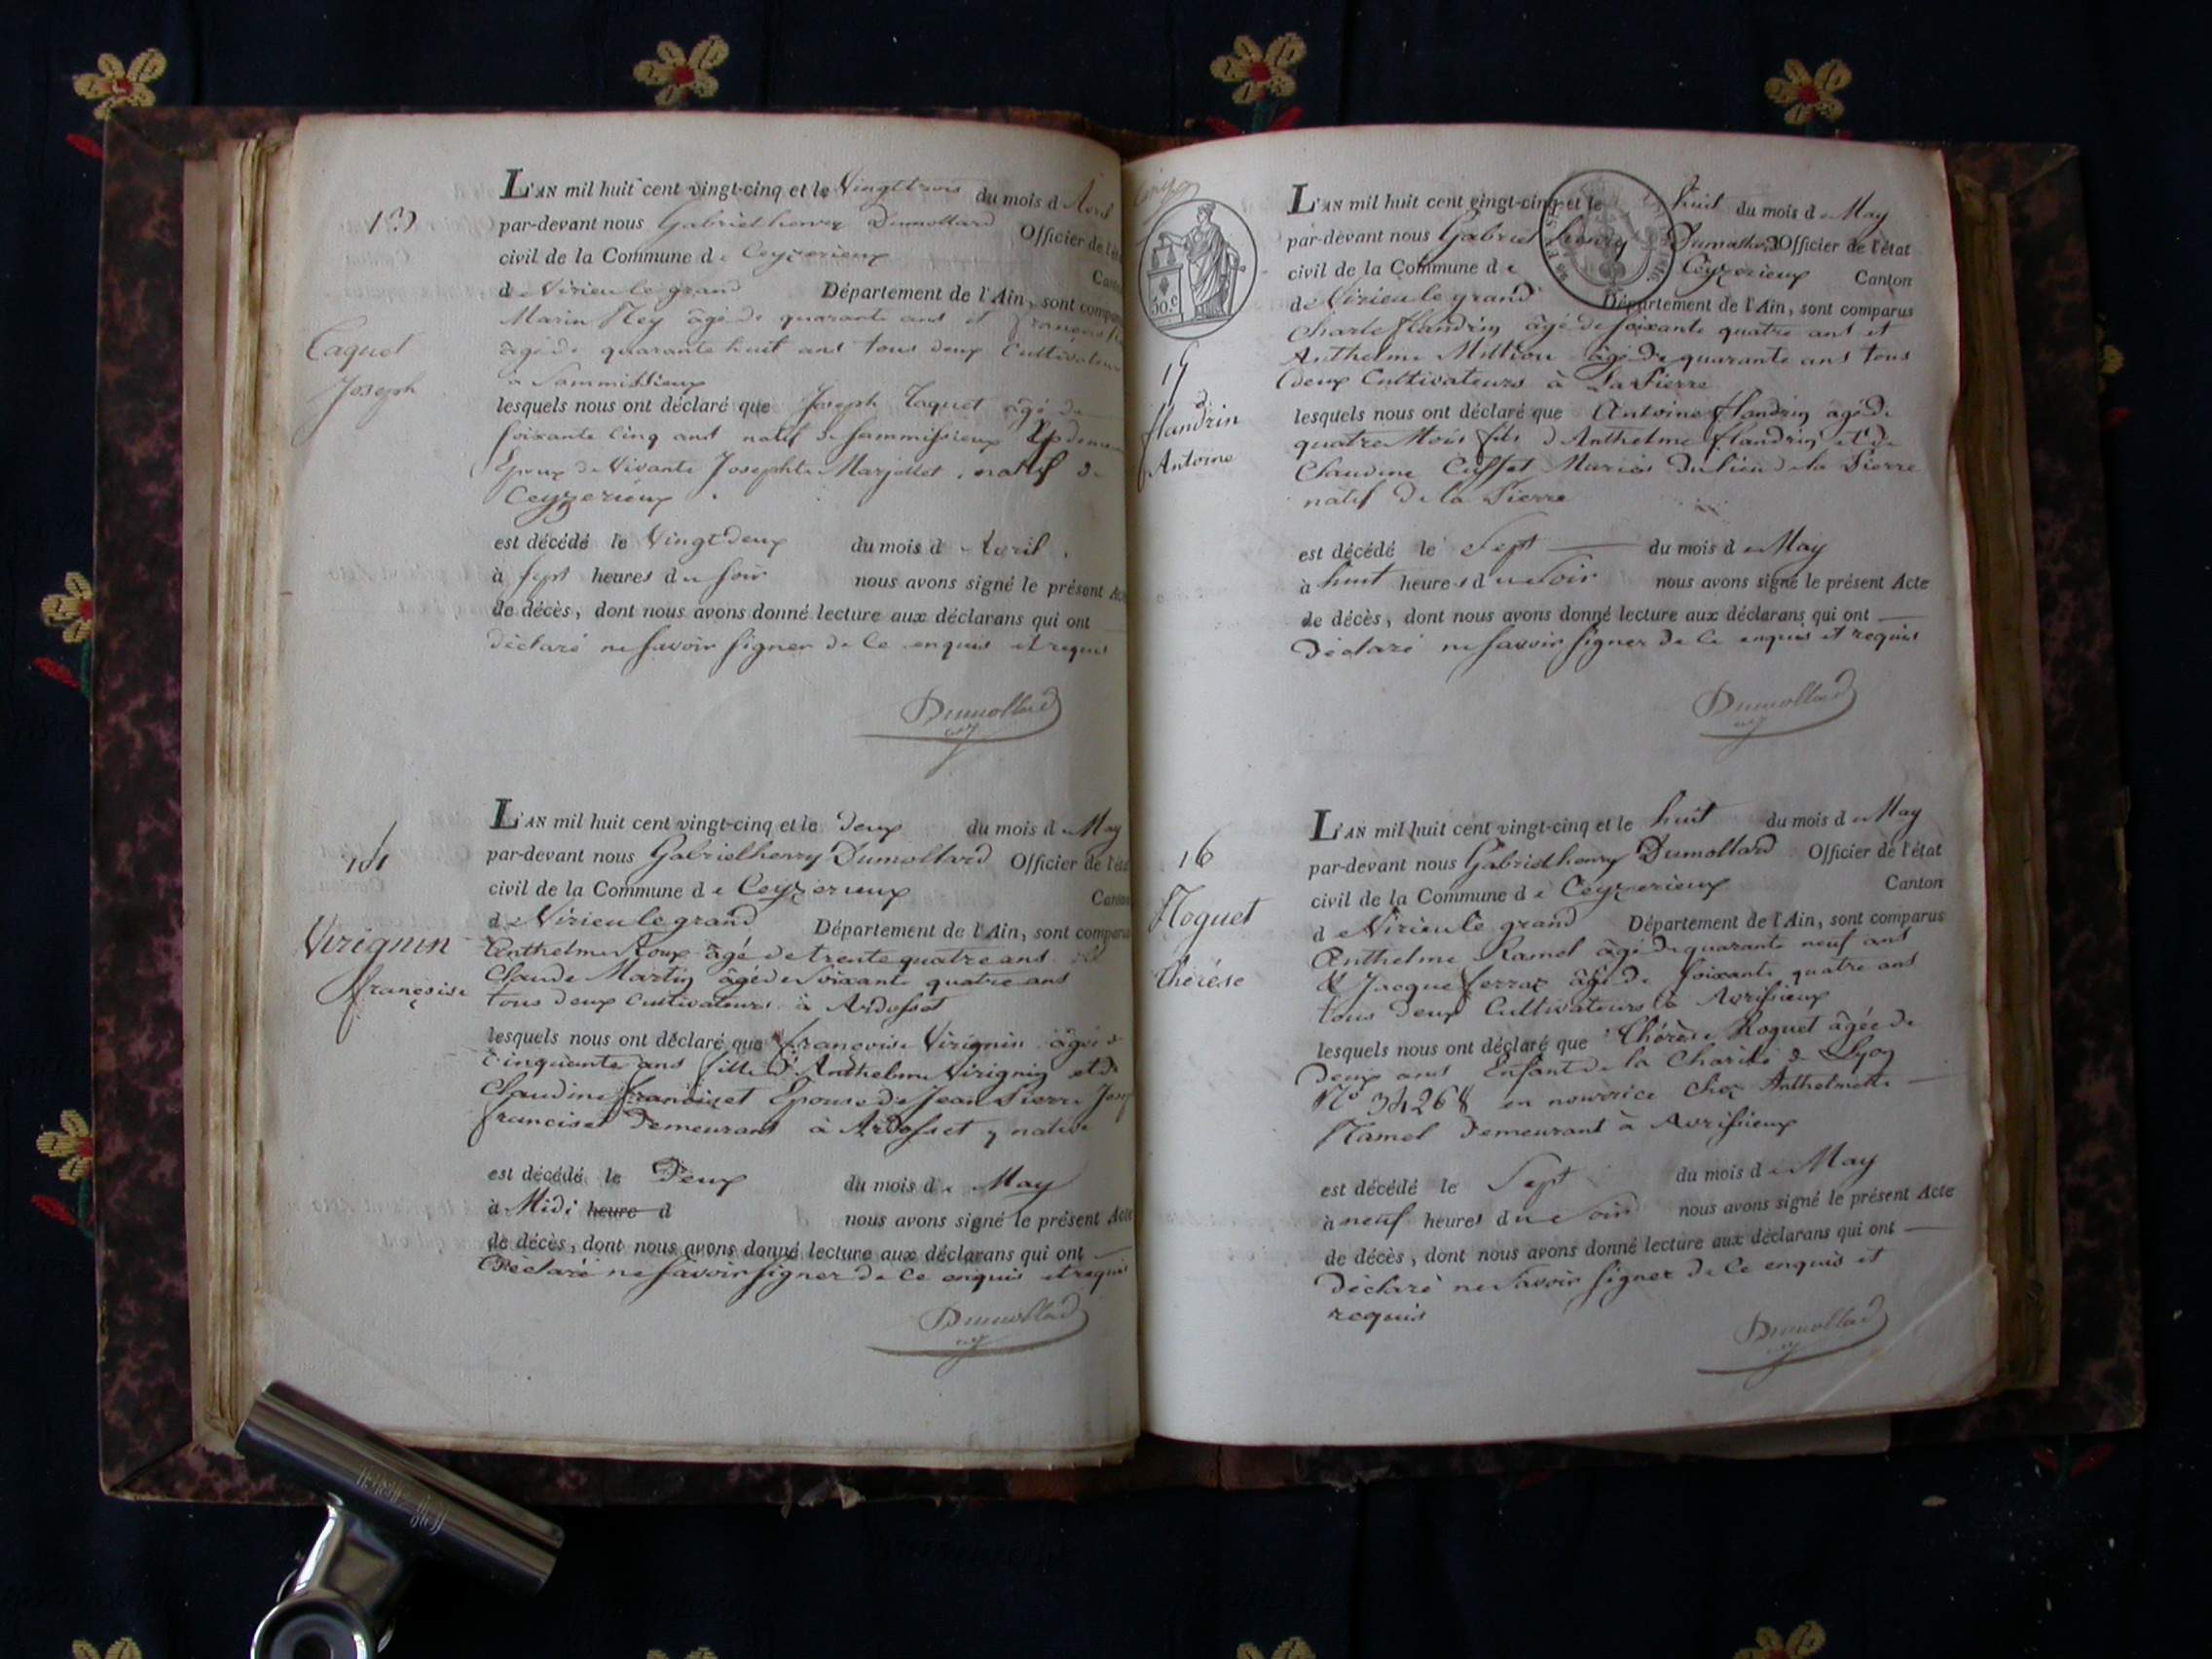 13
Caquet
Joseph
L'AN mil huit cent vingt-cinq et le Vingt trois du mois d'Avril
par-devant nous Gabriel henry Dumollard Officier de l'ét
civil de la Commune de Ceyzerieux Canton
de Virieu le grand Département de l'Ain, sont compa
Marin Rey âgé de quarante ans et françois
âgé de quarante huit ans tous deux Cultivateurs
à Sammissieux
lesquels nous ont déclaré que Joseph Caquet âgé de
soixante Cinq ans natif de Sammissieux
Epoux de Vivante Josephte Marjollet, natif de
Ceyzerieux
est décédé le Vingt deux du mois d'Avril
à sept heures du soir nous avons signé le présent Acte
de décès, dont nous avons donné lecture aux déclarans qui ont
déclaré ne savoir signer de Ce enquis et requis
Dumollard
14
Virignin
françoise
L'AN mil huit cent vingt-cinq et le deux du mois de May
par-devant nous Gabriel henry Dumollard Officier de l'éta
civil de la Commune de Ceyzerieux Canton
de Virieu le grand Département de l'Ain, sont comparu
Anthelme Roux âgé de trente quatre ans
Claude Martin âgé de Soixante quatre ans
tous deux Cultivateurs à Ardosset
lesquels nous ont déclaré que françoise Virignin âgée de
Cinquante ans fille d'Anthelme Virignin et de
Claudine franciset Epouse de Jean Pierre Jos
franciset Demeurant à Ardosset y native
est décédé le Deux du mois de May
à Midi heure d nous avons signé le présent Acte
de décès, dont nous avons donné lecture aux déclarans qui ont
Déclaré ne savoir signer de Ce enquis et requis
Dumollard
50.c
15
flandrin
Antoine
L'AN mil huit cent vingt-cinq et le huit du mois de May
par-devant nous Gabriel henry Dumollard Officier de l'état
civil de la Commune de Ceyzerieux Canton
de Virieu le grand Département de l'Ain, sont comparus
Charle flandrin âgé de soixante quatre ans et
Anthelme Million âgé de quarante ans tous
deux Cultivateurs à La Pierre
lesquels nous ont déclaré que Antoine flandrin âgé de
quatre Mois fils d'Anthelme flandrin et de
Claudine Cusset Mariés du lieu de la Pierre
natif de la Pierre
est décédé le Sept du mois de May
à huit heures du Soir nous avons signé le présent Acte
de décès, dont nous avons donné lecture aux déclarans qui ont
Déclaré ne savoir signer de Ce enquis et requis
Dumollard
16
Roquet
thérèse
L'AN mil huit cent vingt-cinq et le huit du mois de May
par-devant nous Gabriel henry Dumollard Officier de l'état
civil de la Commune de Ceyzerieux Canton
de Virieu le grand Département de l'Ain, sont comparus
Anthelme Ramel âgé de quarante neuf ans
& Jacque ferraz âgé de soixante quatre ans
tous deux Cultivateurs à Avrissieux
lesquels nous ont déclaré que Thérèse Roquet âgée de
Deux ans Enfant de la Charité de Lyon
No 34268 en nourrice Chez Anthelmette
Ramel Demeurant à Avrissieux
est décédé le Sept du mois de May
à neuf heures du Soir nous avons signé le présent Acte
de décès, dont nous avons donné lecture aux déclarans qui ont
Déclaré ne Savoir signer de Ce enquis et
requis
Dumollard